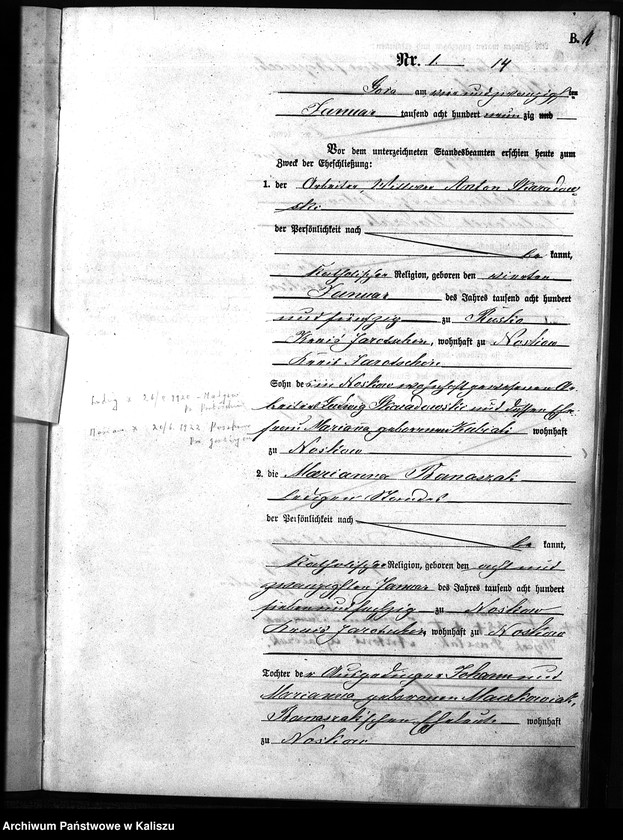 B. 1
Nr. 1. 14
Gora am vier und zwanzigsten
Januar tausend acht hundert neunzig und
Vor dem unterzeichneten Standesbeamten erschien heute zum
Zweck der Eheschließung:
1. der Arbeiter Wittwer Anton Skaradow
ski
der Persönlichkeit nach
be kannt,
katholischer Religion, geboren den vierten
Januar des Jahres tausend acht hundert
und fünfzig zu Rusko
Kreis Jarotschin, wohnhaft zu Noskow
Kreis Jarotschin
Sohn des in Noskow wohnhaft gewesenen Ar-
beiters Ludwig Skaradowski und dessen Ehe-
frau Marianna geborenen Kubiak wohnhaft
zu Noskow
2. die Marianna Banaszak
ledigen Standes
der Persönlichkeit nach
be kannt,
katholischer Religion, geboren den acht und
zwanzigsten Januar des Jahres tausend acht hundert
sieben und sechzig zu Noskow
Kreis Jarotschin, wohnhaft zu Noskow
Tochter der Ausgedinger Johann und
Marianna geborenen Maćkowiak,
Banaszakschen Eheleute wohnhaft
zu Noskow
Archiwum Państwowe w Kaliszu